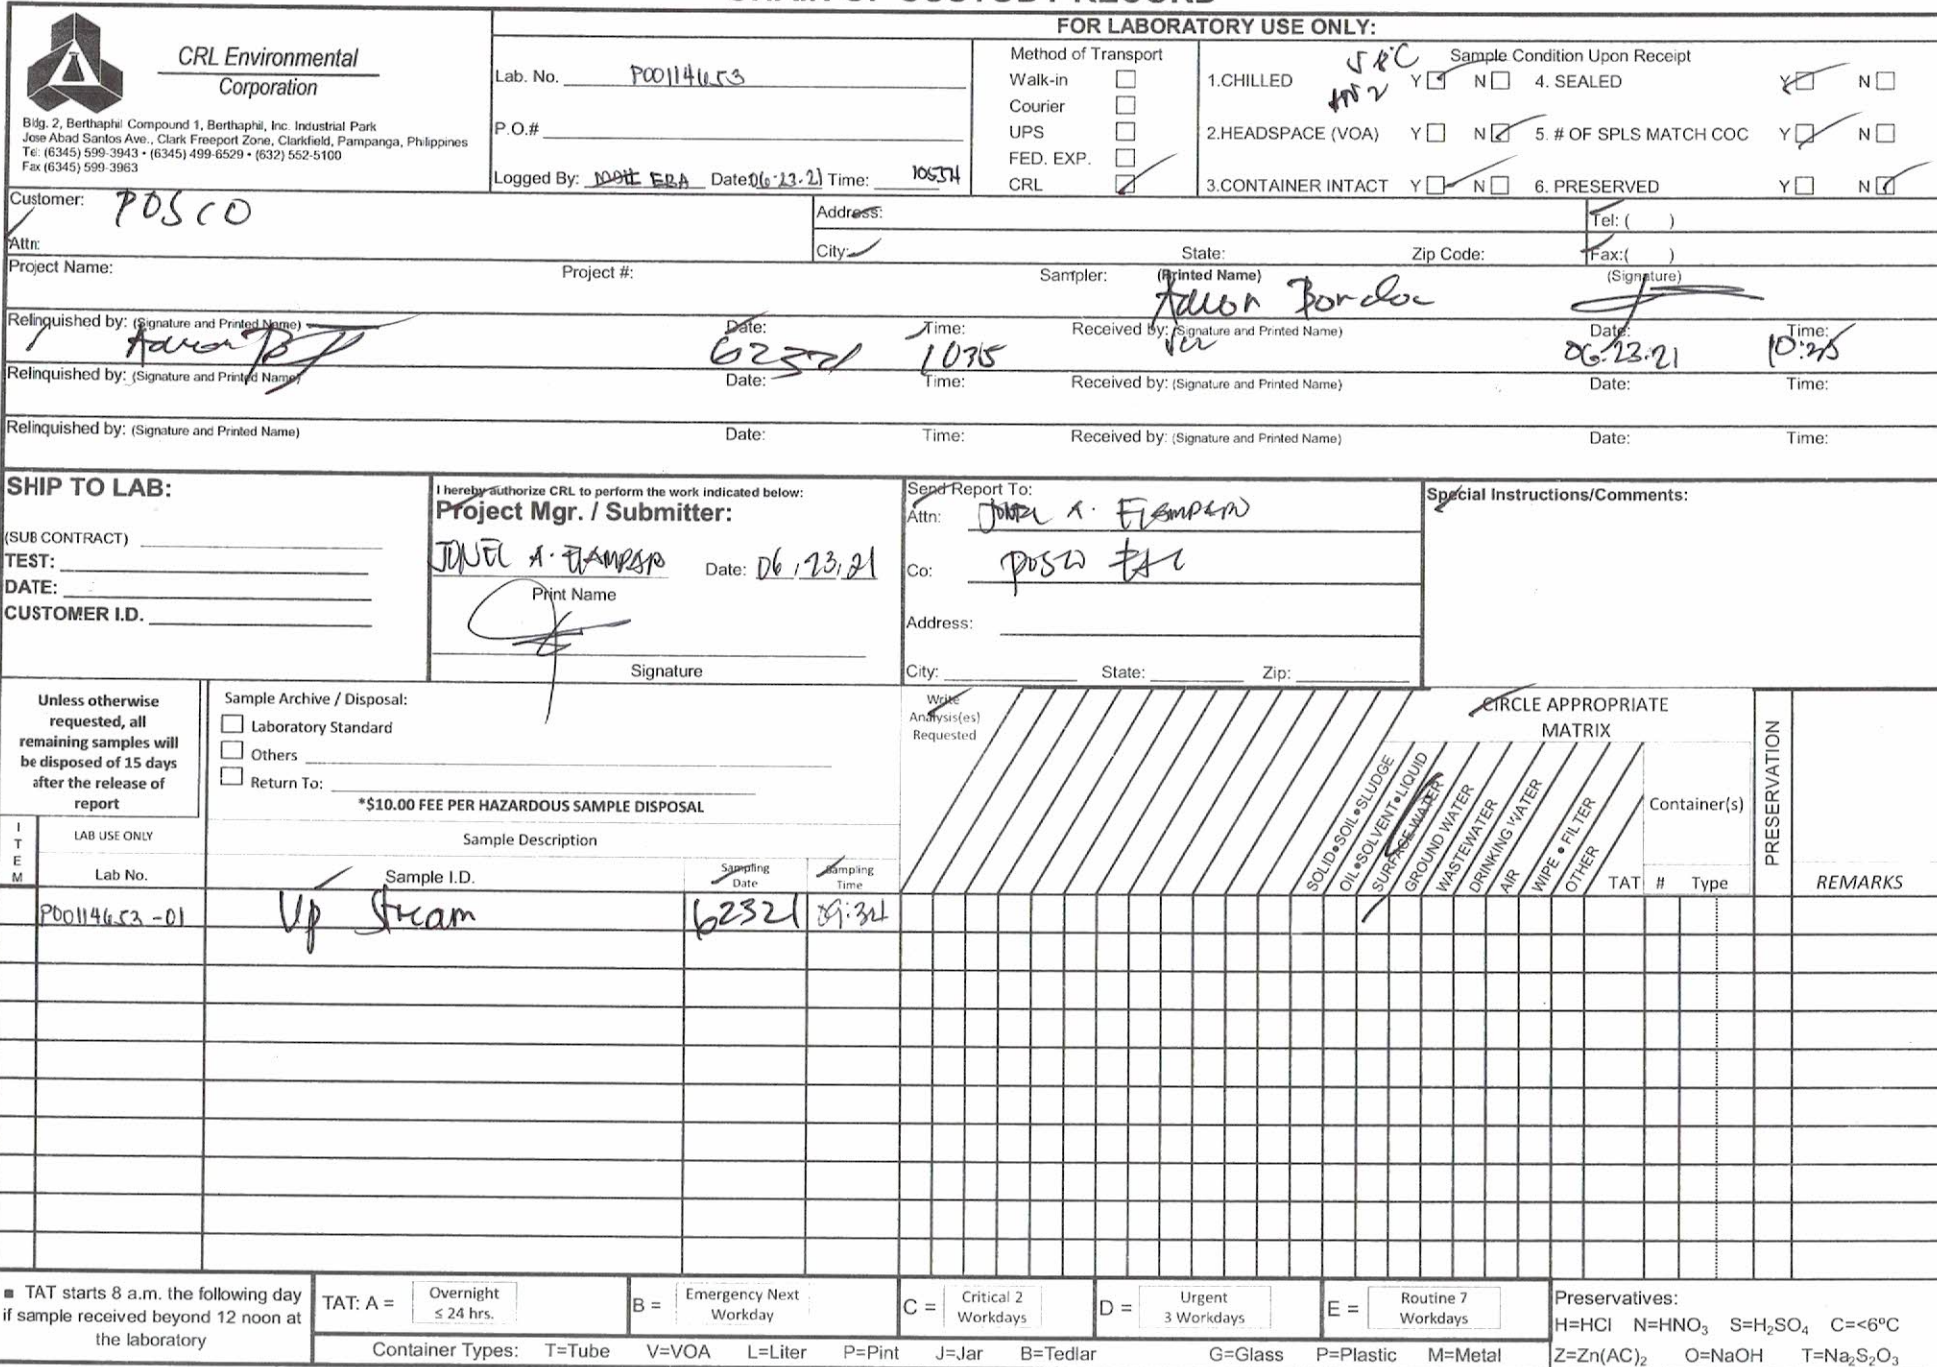 FOR LABORATORY USE ONLY:
CRL Environmental
Corporation
Bldg. 2, Berthaphil Compound 1, Berthaphil, Inc. Industrial Park
Jose Abad Santos Ave., Clark Freeport Zone, Clarkfield, Pampanga, Philippines
Tel: (6345) 599-3943 • (6345) 499-6529 • (632) 552-5100
Fax (6345) 599-3963
Lab. No. P00114653
P.O.#
Logged By: EBA Date: 06-23-21 Time:
Method of Transport
Walk-in
Courier
UPS
FED. EXP.
CRL
Sample Condition Upon Receipt
1.CHILLED Y N 4. SEALED Y N
2.HEADSPACE (VOA) Y N 5. # OF SPLS MATCH COC Y N
3.CONTAINER INTACT Y N 6. PRESERVED Y N
Customer: POSCO
Address: Tel: ( )
Attn:
City: State: Zip Code: Fax:( )
Project Name: Project #: Sampler: (Printed Name) (Signature)
Relinquished by: (Signature and Printed Name) Date: 62321 Time: 1035 Received by: (Signature and Printed Name) Date: 06.23.21 Time: 10:35
Relinquished by: (Signature and Printed Name) Date: Time: Received by: (Signature and Printed Name) Date: Time:
Relinquished by: (Signature and Printed Name) Date: Time: Received by: (Signature and Printed Name) Date: Time:
SHIP TO LAB:
(SUB CONTRACT)
TEST:
DATE:
CUSTOMER I.D.
I hereby authorize CRL to perform the work indicated below:
Project Mgr. / Submitter:
JONEL A. Date: 06,23,21
Print Name
Signature
Send Report To:
Attn: JONEL A.
Co: POSCO E&C
Address:
City: State: Zip:
Special Instructions/Comments:
Unless otherwise
requested, all
remaining samples will
be disposed of 15 days
after the release of
report
Sample Archive / Disposal:
Laboratory Standard
Others
Return To:
*$10.00 FEE PER HAZARDOUS SAMPLE DISPOSAL
Write
Analysis(es)
Requested
CIRCLE APPROPRIATE
MATRIX
SOLID•SOIL•SLUDGE
OIL•SOLVENT•LIQUID
SURFACE WATER
GROUND WATER
WASTEWATER
DRINKING WATER
AIR
WIPE • FILTER
OTHER
TAT
Container(s)
# Type
PRESERVATION
REMARKS
ITEM
LAB USE ONLY
Lab No.
Sample Description
Sample I.D.
Sampling
Date
Sampling
Time
P00114653-01 Up Stream 62321 09:34
■ TAT starts 8 a.m. the following day
if sample received beyond 12 noon at
the laboratory
TAT: A = Overnight
≤ 24 hrs.
B = Emergency Next
Workday
C = Critical 2
Workdays
D = Urgent
3 Workdays
E = Routine 7
Workdays
Container Types: T=Tube V=VOA L=Liter P=Pint J=Jar B=Tedlar G=Glass P=Plastic M=Metal
Preservatives:
H=HCl N=HNO₃ S=H₂SO₄ C=<6ºC
Z=Zn(AC)₂ O=NaOH T=Na₂S₂O₃